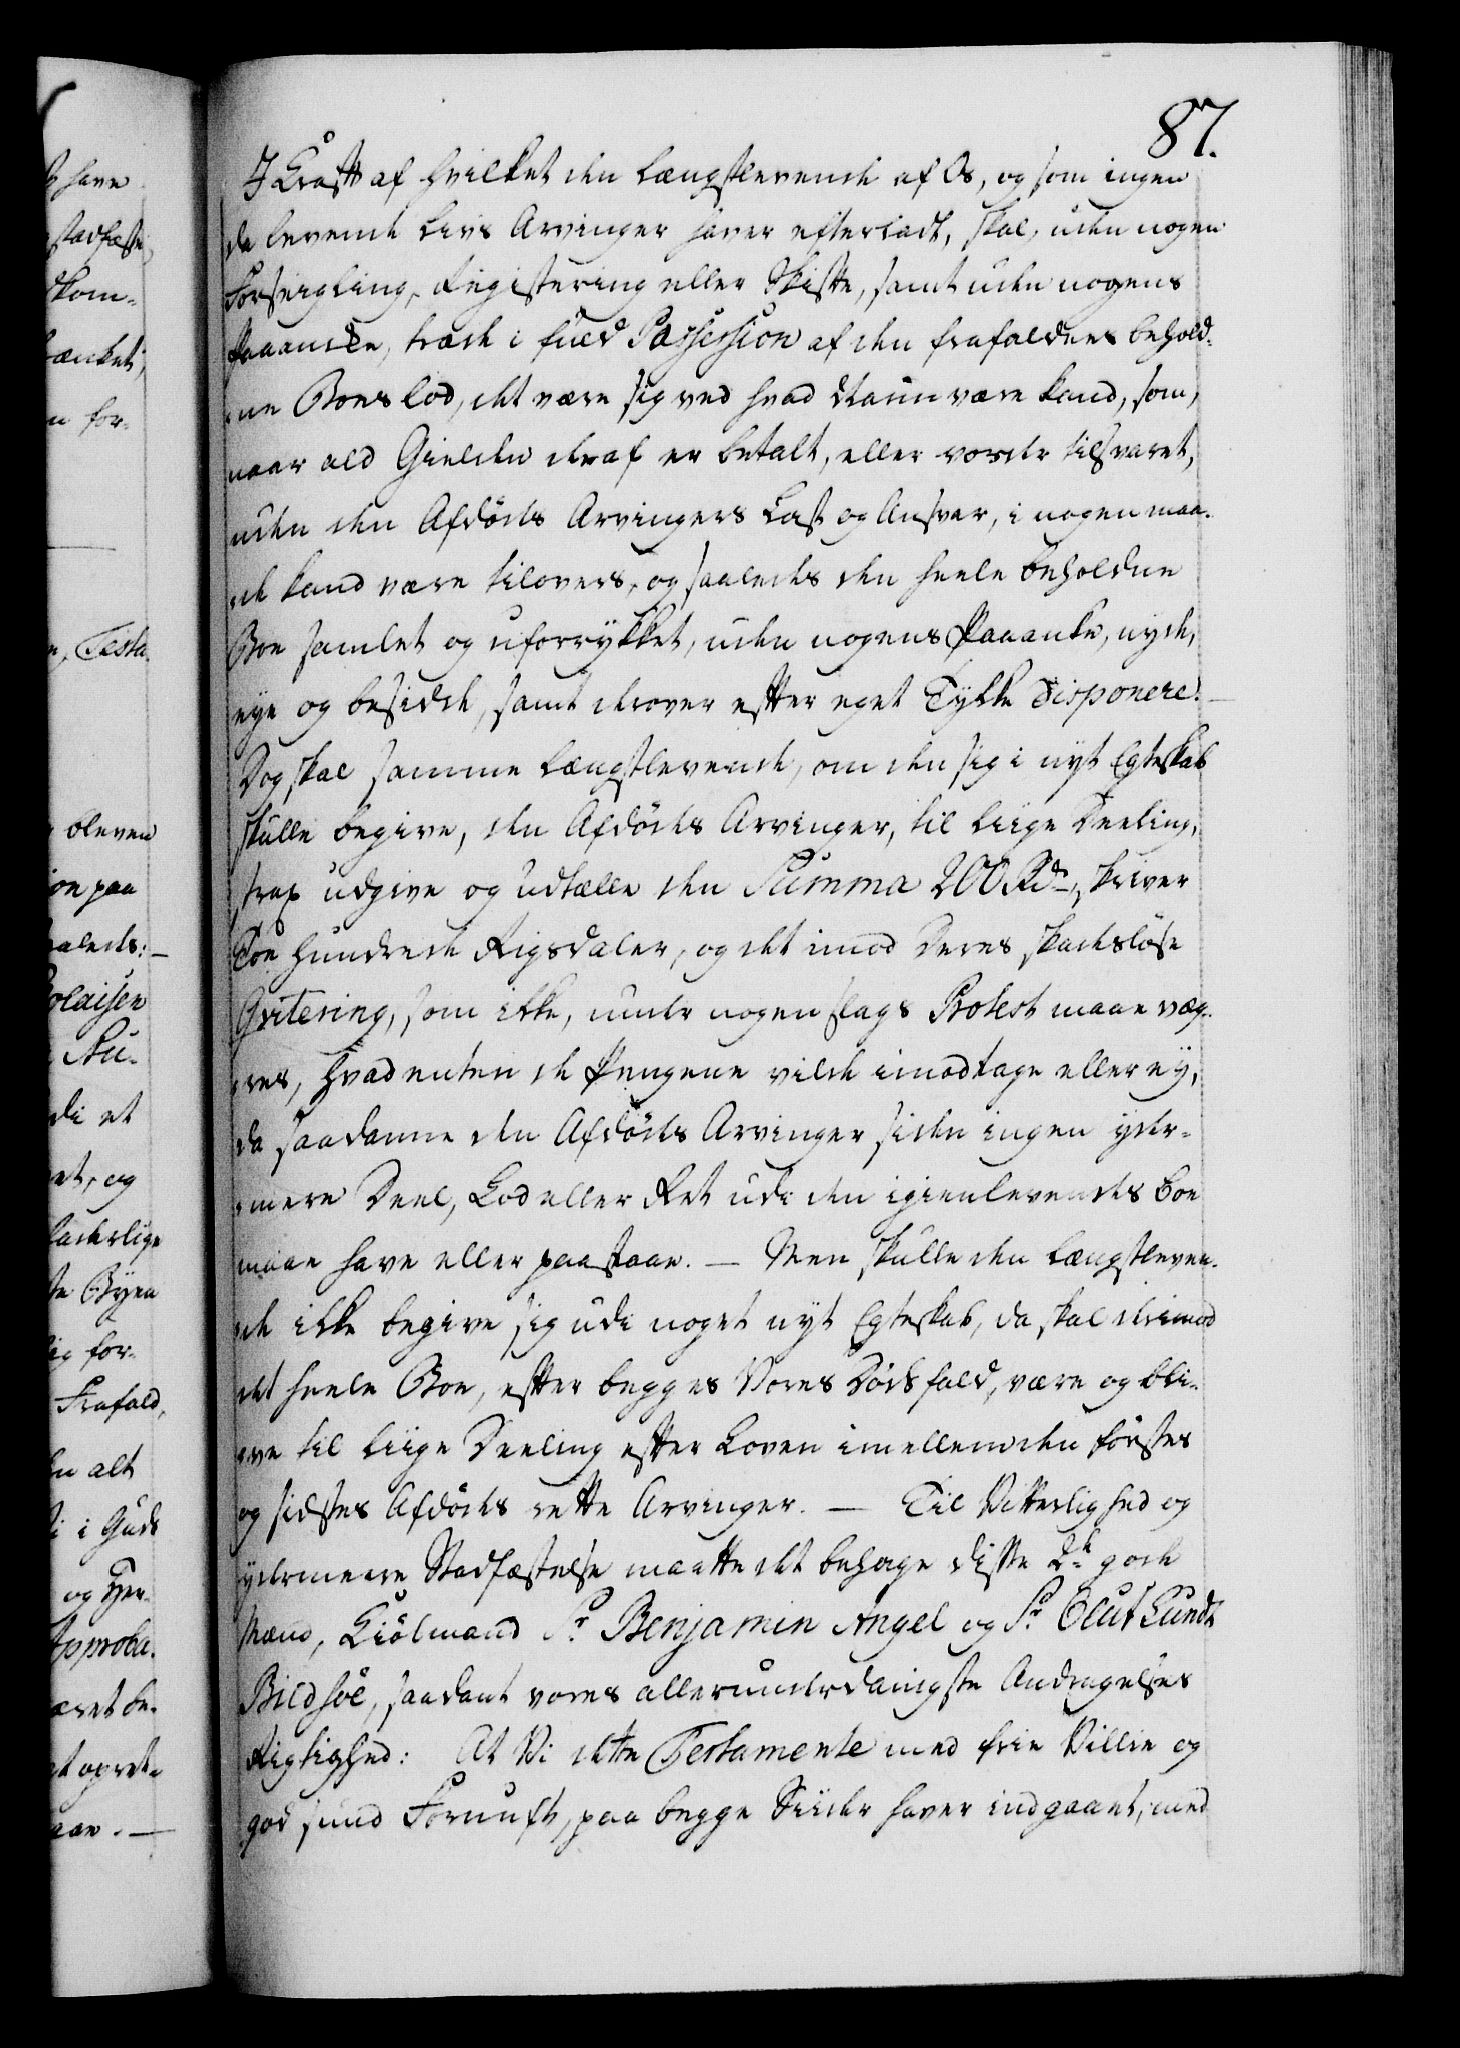 87.
I Kraft af hvilket den længstlevende af Os, og som ingen
da levende Livs Arvinger haver efterladt, skal, uden nogen
Forseigling, Registering eller Skifte, samt uden nogens
Paaancke, træde i fuld Possession af den frafaldnes behold-
ne Boes Lod, det være sig ved hvad Navn være kand, som,
naar ald Gielden deraf er betalt, eller vorder tilsvaret,
uden den Afdødes Arvingers Last og Ansvar, i nogen maa-
de kand være tilovers, og saaledes den heele beholdne
Boe samlet og uforrykket, uden nogens Paaanke, nyde,
eye og besidde, samt derover efter eget Tykke disponere. —
Dog skal samme længstlevende, om den sig i nyt Egteskab
skulle begive, den Afdødes Arvinger, til liige Deeling,
strax udgive og udtælle den Summa 200 Rdr, skriver
Toe hundrede Rigsdaler, og det imod Deres skadesløse
Qvitering, som ikke, under nogen slags Protest maae væg-
res, hvad enten de Pengene vilde imodtage eller ey,
da saadanne den Afdødes Arvinger siden ingen yder-
mere Deel, Lod eller Ret udi den igienlevendes Boe
maae have eller paastaae. — Men skulle den længstleven-
de ikke begive sig udi noget nyt Egteskab, da skal derimod
det heele Boe, efter begges Vores Dødsfald, være og bli-
ve til liige Deeling efter Loven imellem den førstes
og sidstes Afdødes rette Arvinger. — Til Vitterlighed og
ydermeere Stadfæstelse maatte det behage disse 2de gode
Mænd, Kiøbmand Sr. Benjamin Angel og Sr. Oluf Lundt
Bildsøe, saadant vores allerunderdanigste Andragelses
Rigtighed: At Vi dette Testamente med frie Villie og
god sund Fornuft, paa begge Siider haver indgaaet, med